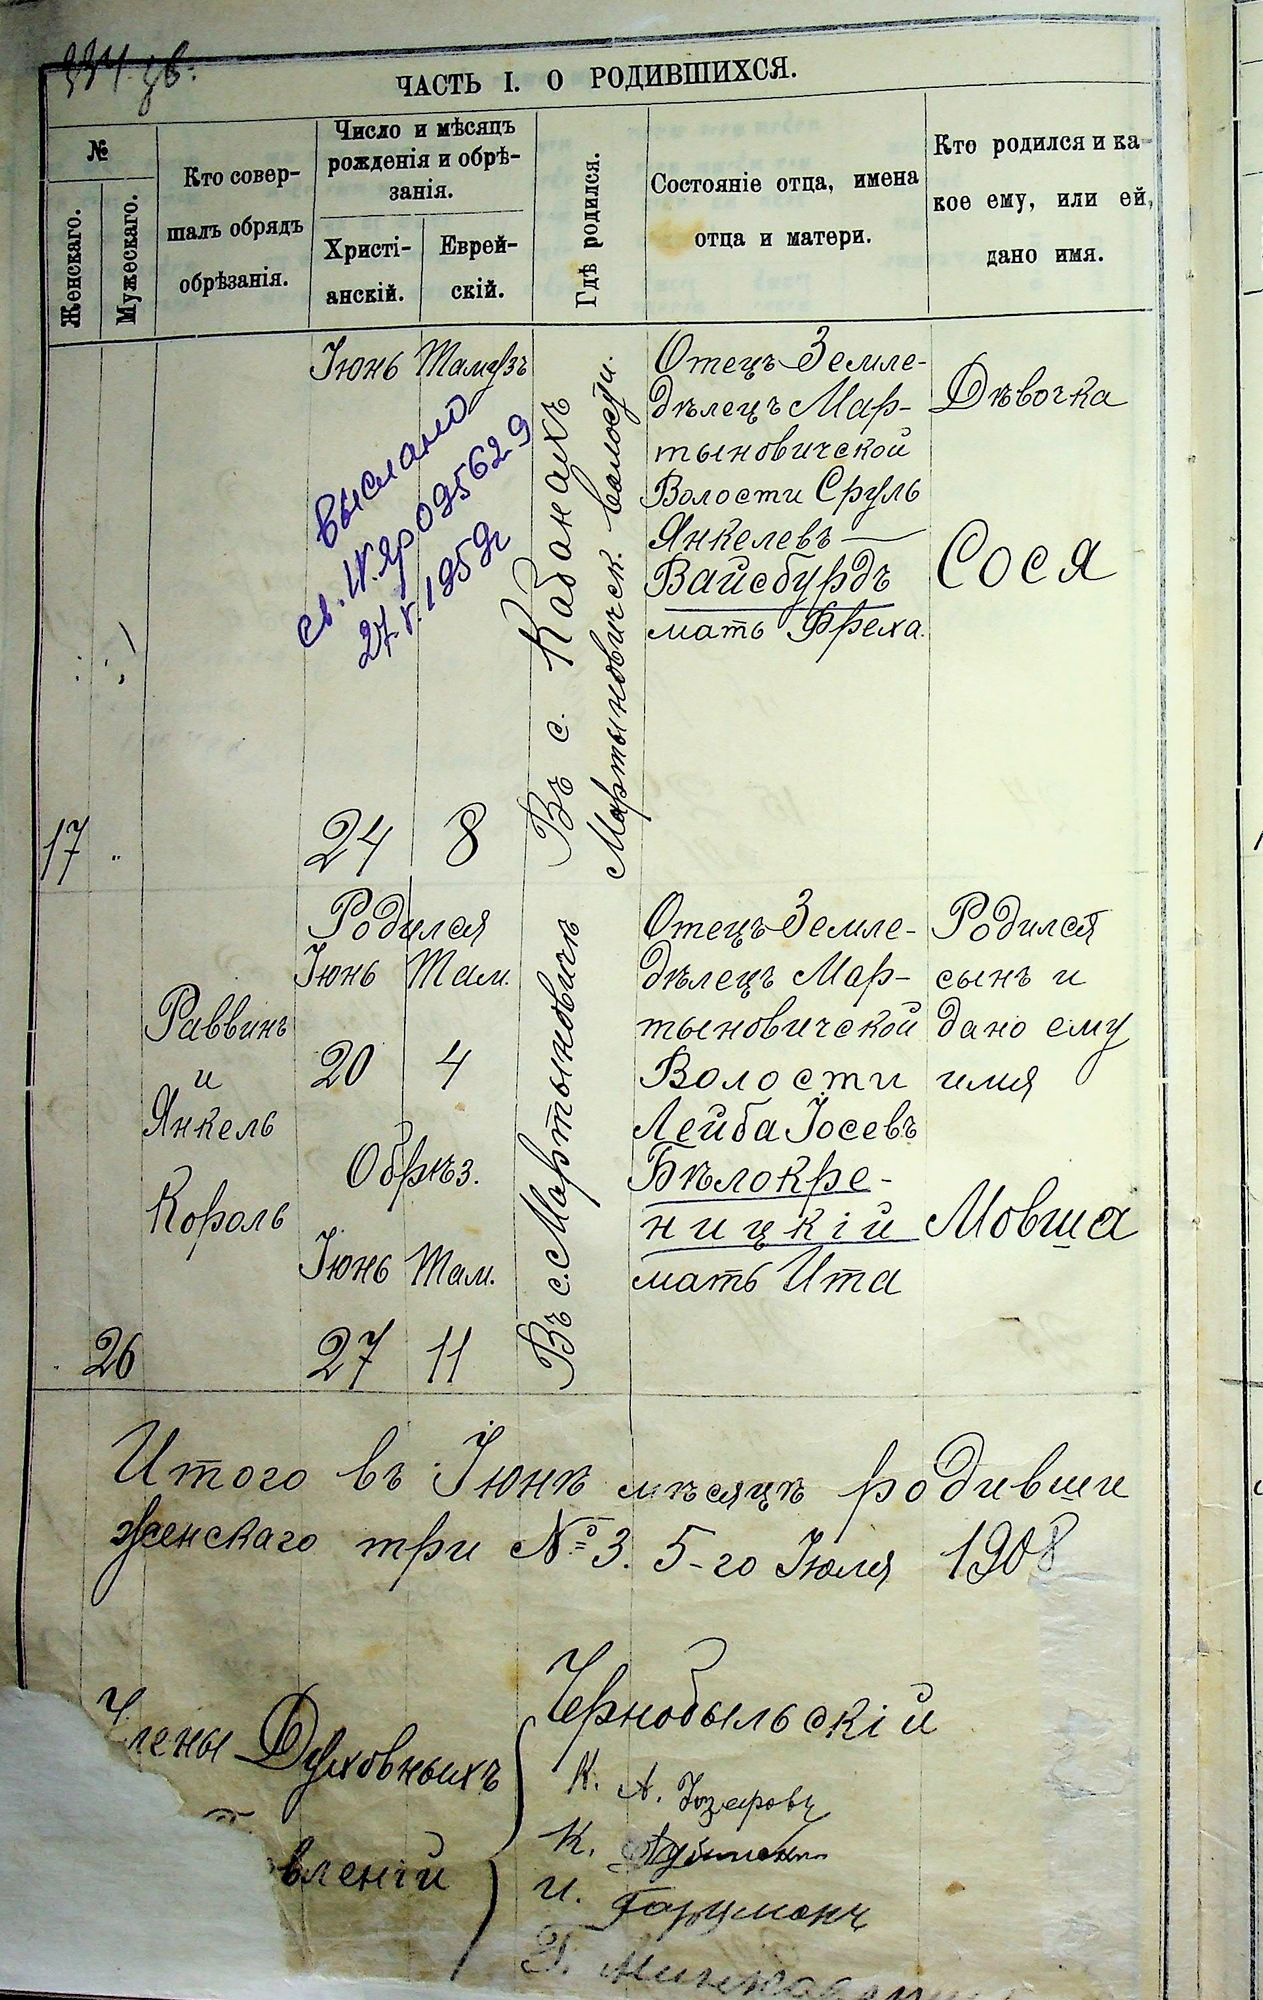 334 зв.
ЧАСТЬ I. О РОДИВШИХСЯ.
№
Женскаго.
Мужескаго.
Кто совер-
шалъ обрядъ
обрѣзанія.
Число и мѣсяцъ
рожденія и обрѣ-
занія.
Христі-
анскій.
Еврей-
скій.
Гдѣ родился.
Состояніе отца, имена
отца и матери.
Кто родился и ка-
кое ему, или ей,
дано имя.
17
"
Іюнь
24
Тамузъ
8
выслано
св. IV. яр 095629
27.V.1959г
Въ с. Кабанахъ
Мартыновичск. волости.
Отецъ Земле-
дѣлецъ Мар-
тыновичской
Волости Сруль
Янкелевъ
Вайсбурдъ
мать Фреха.
Дѣвочка
Сося
26
Раввинъ
и
Янкель
Король
Родился
Іюнь Там.
20 4
Обрѣз.
Іюнь Там.
27 11
Въ с. Мартыновичѣ
Отецъ Земле-
дѣлецъ Мар-
тыновичской
Волости
Лейба Іосевъ
Бѣлокре-
ницкій
мать Ита
Родился
сынъ и
дано ему
имя
Мовша
Итого въ Іюнѣ мѣсяцѣ родивши
женскаго три № 3. 5-го Іюля 1908
Члены Духовныхъ
вленій
Чернобыльскій
К. А.
К.
И.